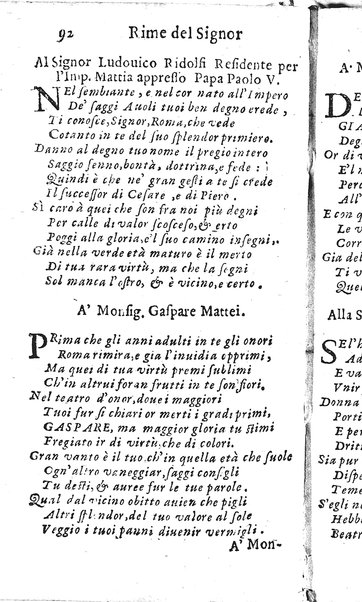 92 Rime del Signor
Al Signor Ludouico Ridolfi Residente per
l'Imp. Mattia appresso Papa Paolo V.
NEl sembiante, e nel cor nato all'Impero
De' saggi Auoli tuoi ben degno erede,
Ti conosce, Signor, Roma, che vede
Cotanto in te del suo splendor primiero.
Danno al degno tuo nome il pregio intero
Saggio senno, bontà, dottrina, e fede:
Quindi è che ne' gran gesti a te si crede
Il successor di Cesare, e di Piero.
Sì caro à quei che son fra noi più degni
Per calle di valor scosceso, & erto
Poggi alla gloria, e'l suo camino insegni,
Già nella verde età maturo è il merto
Di tua rara virtù, ma che la segni
Sol manca l'ostro, & è vicino, e certo.
A' Monsig. Gaspare Mattei.
PRima che gli anni adulti in te gli onori
Roma rimira, e gia l'inuidia opprimi,
Ma quei di tua virtù premi sublimi
Ch'in altrui foran frutti in te son fiori.
Nel teatro d'onor, douei maggiori
Tuoi fur sì chiari or merti i gradi primi,
GASPARE, ma maggior gloria tu stimi
Fregiato ir di virtù, che di colori.
Gran vanto è il tuo, ch'in quella età che suole
Ogn'altro vaneggiar, saggi consigli
Tu desti, & auree fur le tue parole.
Qual dal vicino obitto auien che pigli
Altri splendor, del tuo valore al sole
Veggio i tuoi panni diuenir vermigli.
A' Mon-
A' M
DE
GIA
Deg
Or di v
E'l n
Perc
All'
E con q
Le v
Corr
Gia del
Ti v
Alla S
SEl h
E va
Vnir
Donna
Porti
E pe
Drit
Sia pur
Dispe
Teme
S'egli n
Hebb
Beatr